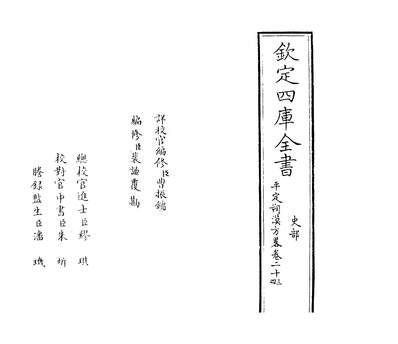 欽定四庫全書
史部
平定朔漠方畧卷二十三四
詳校官編修臣曹振鏞
編修臣裴謙覆勘
總校官進士臣繆琪
校對官中書臣朱炘
謄録監生臣潘璣